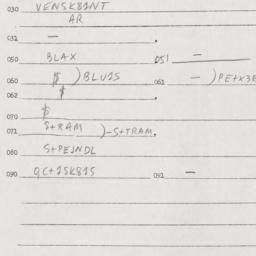 030 VENSK81NT
AR
031 — .
BLAX 051 —
060 $ ) BLU1S 061 — ) PE+X3E
062 $ .
070 $
071 S+RAM ) -S+TRAM.
080 S+PEJNDL
090 QC+1SK81S 091 —